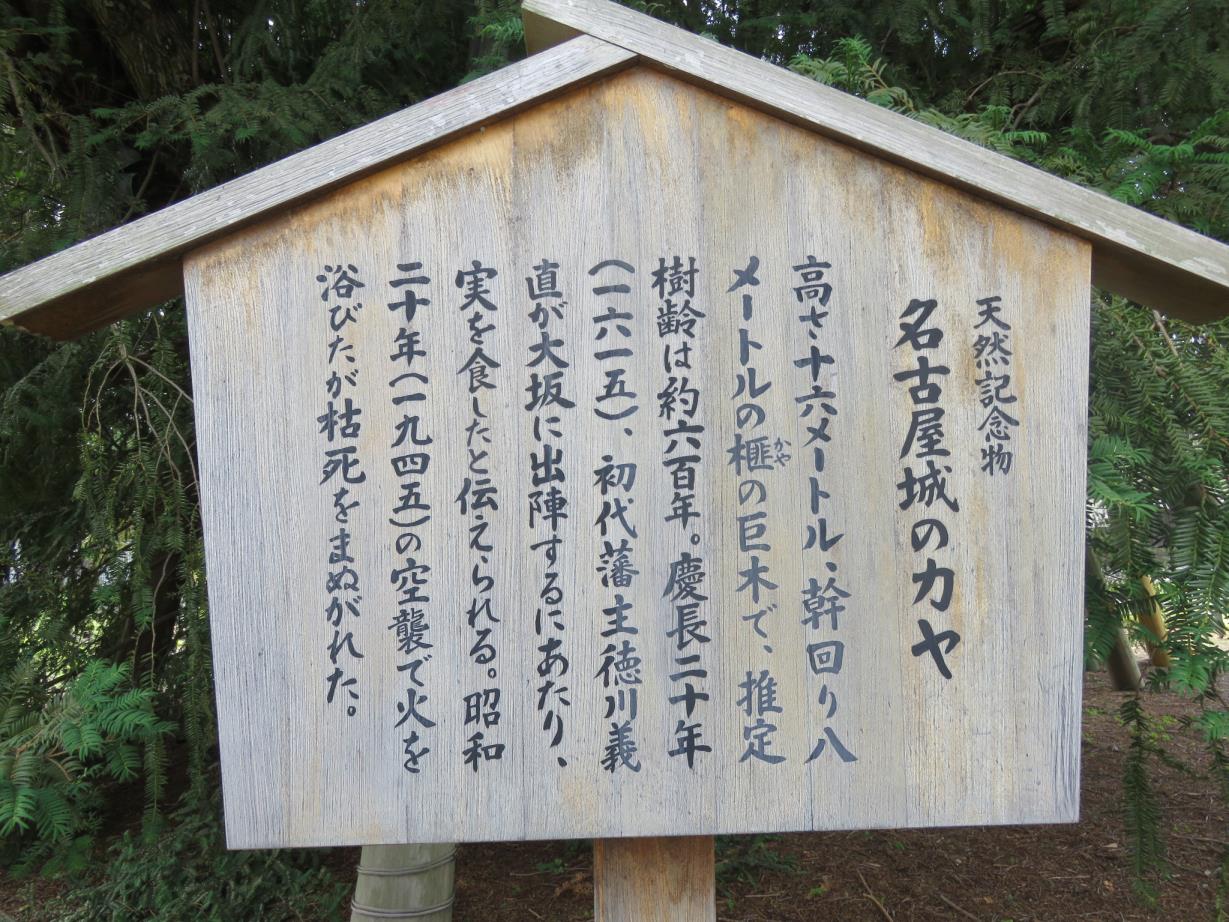 天然記念物
名古屋城のカヤ
高さ十六メートル、幹回り八
メートルの榧かやの巨木で、推定
樹齢は約六百年。慶長二十年
(一六一五)、初代藩主徳川義
直が大坂に出陣するにあたり、
実を食したと伝えられる。昭和
二十年(一九四五)の空襲で火を
浴びたが枯死をまぬがれた。